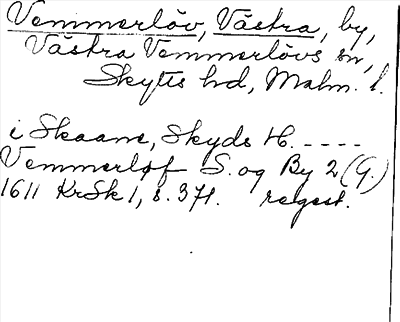 Vemmerlöv, Västra, by,
Västra Vemmerlövs sn,
Skytts hd, Malm. l.
i Skaane, Skyds H. ----
Vemmerløf S. og By 2 (G.)
1611 KrSk 1, s. 371. regest.